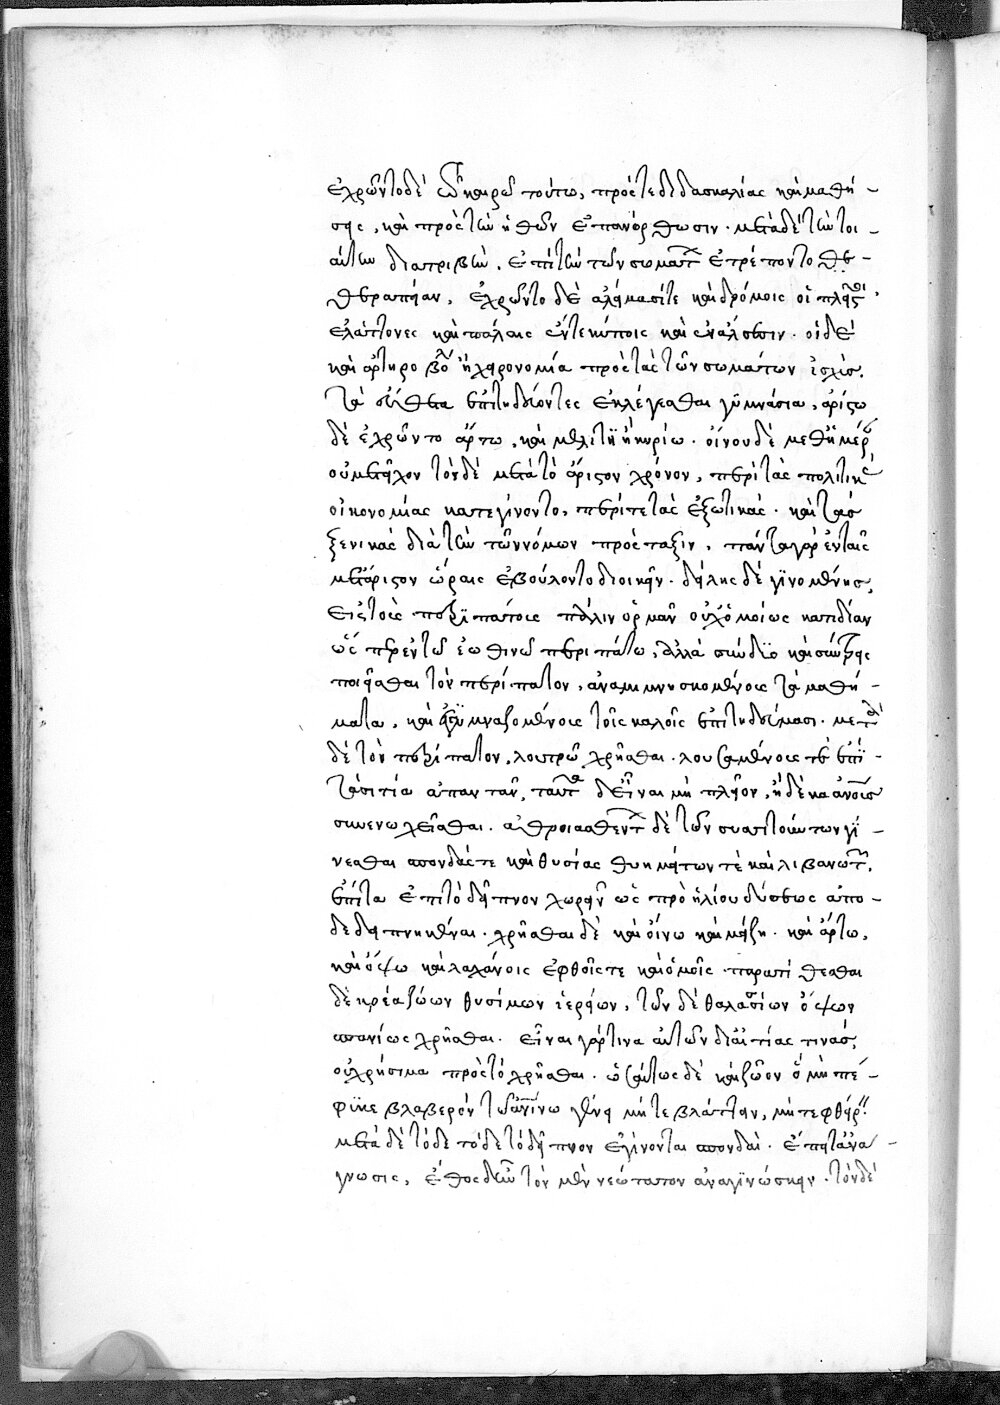 ἐχρῶντο δὲ τῶ καιρῶ τούτω, πρός τε διδασκαλίας καὶ μαθή -
σεις, καὶ πρὸς τὴν ἠθῶν ἐπανόρθωσιν. μετὰ δὲ τὴν τοι -
αύτην διατριβὴν, ἐπὶ τὴν τῶν σωμάτ ἐτρέποντο θε -
θεραπείαν. ἐχρῶντο δὲ ἀλείμασί τε καὶ δρόμοις οἱ πλεῖστοι,
ἐλάττονες καὶ πάλαις ἔν τε κήποις καὶ ἐν ἄλσεσιν. οἱ δὲ
καὶ ἁλτηροβολ ἢ χειρονομία πρὸς τὰς τῶν σωμάτων ἰσχὺς.
τὰ εὔθετα ἐπιτηδεύοντες ἐκλέγεσθαι γυμνάσια. ἀρίστω
δὲ ἐχρῶντο ἄρτω, καὶ μέλιτι ἢ κηρίω. οἴνου δὲ μεθ' ἡμέρ
οὐ μετεῖχον τὸν δὲ μετὰ τὸ ἄριστον χρόνον, περὶ τὰς πολιτικὰς
οἰκονομίας κατεγίνοντο, περί τε τὰς ἐξωτικάς. καὶ τὰς
ξενικὰς διὰ τὴν τῶν νόμων πρόσταξιν. πάντα γὰρ ἐν ταῖς
μετάριστον ὥραις ἐβούλοντο διοικεῖν. δείλης δὲ γινομένης,
εἰς τοὺς περιπάτους πάλιν ὁρμᾶν οὐχ ὁμοίως κατιδίαν
ὡς περ ἐν τῶ ἑωθινῶ περιπάτω, ἀλλὰ σύνδυο καὶ σύντρεις
ποιεῖσθαι τὸν περίπατον, ἀναμιμνησκομένους τὰ μαθή -
ματα, καὶ ἐγγυμναζομένους τοῖς καλοῖς ἐπιτηδεύμασι. μετὰ
δὲ τὸν περίπατον, λουτρῶ χρῆσθαι. λουσαμένους τε ἐπὶ -
τὰ σιτία ἀπανταν, ταῦτα δ' εἶναι μὴ πλεῖον, ἢ δέκα ἀνοις
συνευωχεῖσθαι. ἀθροισθέντ δὲ τῶν συσσιτούντων γί -
νεσθαι σπονδάς τε καὶ θυσίας θυημάτων τὲ καὶ λιβανωτοῦ,
ἔπειτα ἐπὶ τὸ δεῖπνον χωρεῖν ὡς πρὸ ἡλίου δύσεως ἀπο -
δεδειπνηκέναι. χρῆσθαι δὲ καὶ οἴνω καὶ μάζη. καὶ ἄρτω,
καὶ ὄψω καὶ λαχάνοις ἑφθοῖς τε καὶ ὠμοῖς. παρατίθεσθαι
δὲ κρέα ζώων θυσίμων ἱερείων, τῶν δὲ θαλασσίων ὄψων
σπανίως χρῆσθαι. εἶναι γάρ τινα αὐτῶν δι' αἰτίας τινὰς,
οὐ χρήσιμα πρὸς τὸ χρῆσθαι. ὡσαύτως δὲ καὶ ζῶον ὃ μὴ πέ -
φυκε βλαβερὸν τῶ ἀνίνω γένει μήτε βλάπτειν, μήτε φθείρ
μετὰ δὲ τόδε τὸ δε τὸ δεῖπνον ἐγίνονται σπονδαὶ. ἔπειτα ἀνα -
γνωσις, ἔθος δ' ἦν τὸν μὲν νεώτατον ἀναγινώσκειν. τὸν δὲ